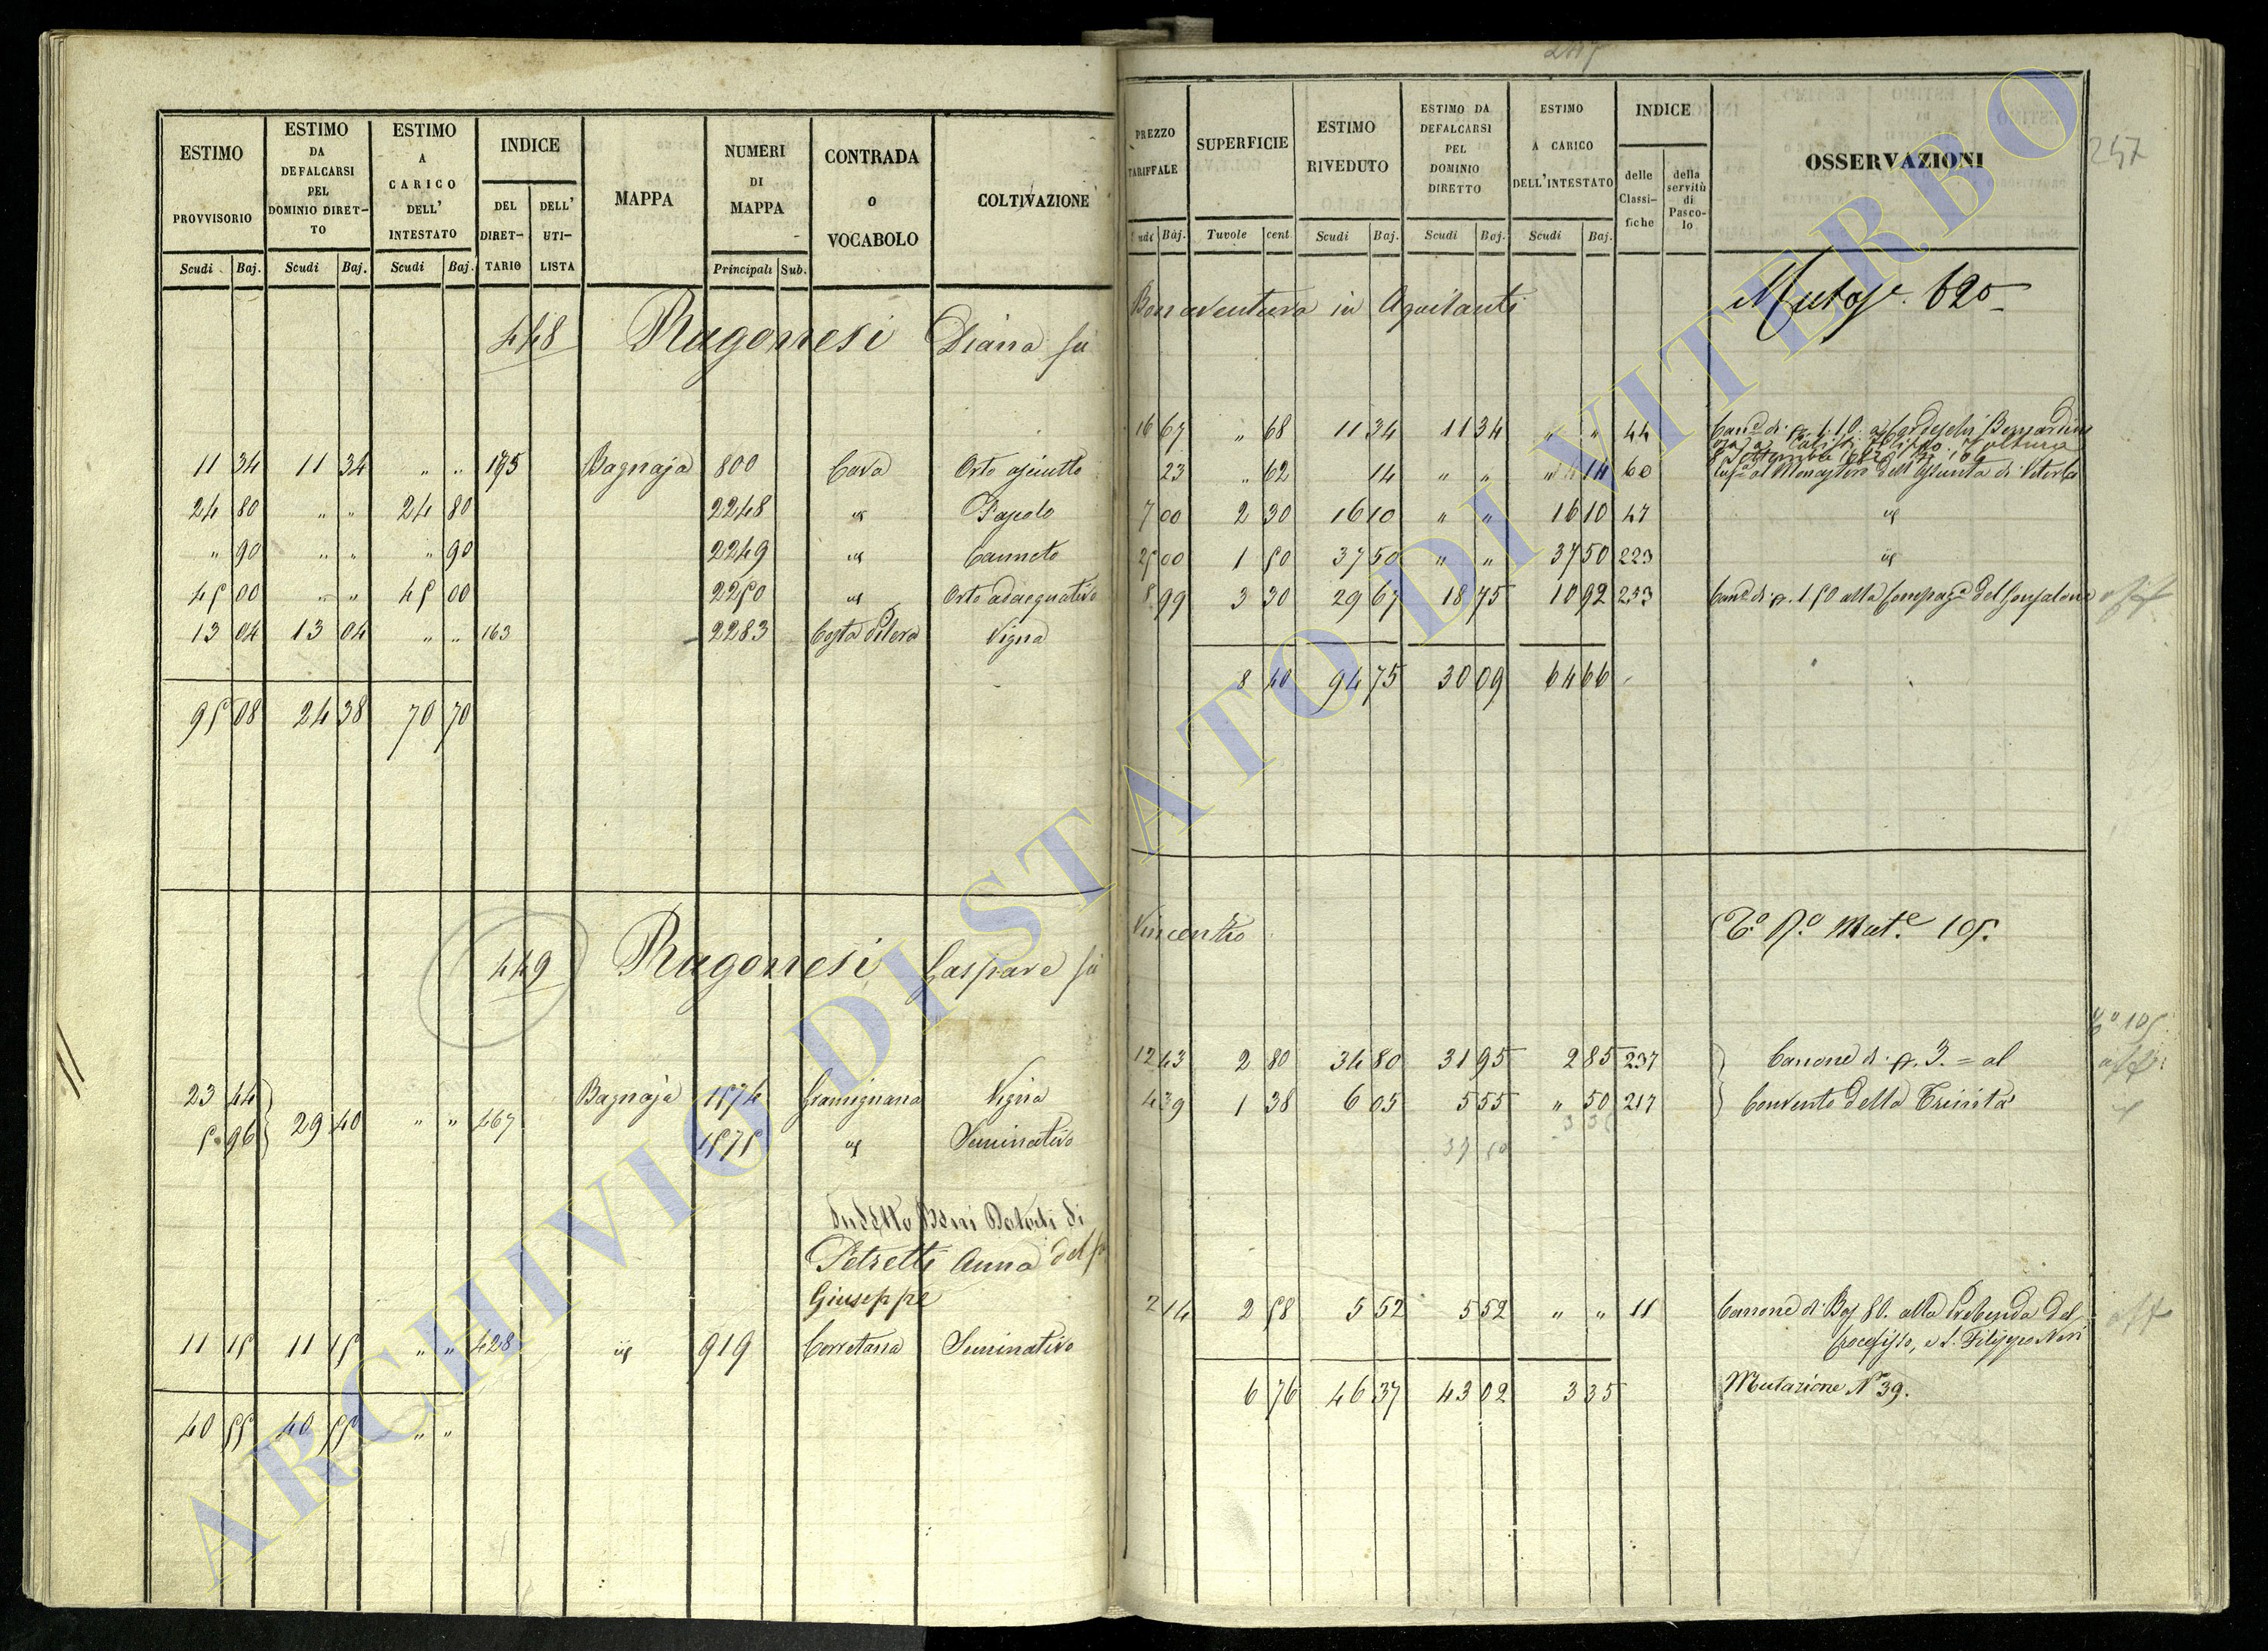 247
247
ESTIMO PROVVISORIO
ESTIMO DA DEFALCARSI PEL DOMINIO DIRETTO
ESTIMO A CARICO DELL' INTESTATO
INDICE
DEL DIRETTARIO
DELL' UTILISTA
MAPPA
NUMERI DI MAPPA
CONTRADA O VOCABOLO
COLTIVAZIONE
Scudi Baj. Scudi Baj. Scudi Baj. Principali Sub.
PREZZO TARIFFALE
SUPERFICIE
ESTIMO RIVEDUTO
ESTIMO DA DEFALCARSI PEL DOMINIO DIRETTO
ESTIMO A CARICO DELL'INTESTATO
INDICE
delle Classifiche
della servitù di Pascolo
OSSERVAZIONI
Baj. Tavole cent. Scudi Baj. Scudi Baj. Scudi Baj.
448 Ragonesi Diana fu Bonaventura in Aquilanti
11 34 11 34 " " 195 Bagnaja 800 Cava Orto asciutto 16 67 " 68 11 34 11 34 " " 44
24 80 " " 24 80 2248 " 23 " 62 14 " " " 14 60 al Monastero dell'Assunta di Viterbo
" 90 " " " 90 2249 Canneto 7 00 2 30 16 10 " " 16 10 47
45 00 " " 45 00 2250 Orto adaequativo 25 00 1 50 37 50 " " 37 50 223
13 04 13 04 " " 163 2283 Vigna 8 99 3 30 29 67 18 75 10 92 233 alla Compag.a del Gonfalone
95 08 24 38 70 70 8 40 94 75 30 09 64 66
449 Ragonesi Gaspare fu Vincenzo
Mut.e 105.
23 44 Bagnaja 1574 Gramignana Vigna 12 43 2 80 34 80 31 95 2 85 237 Canone di 3. = al
5 96 29 40 " " 467 1575 Seminativo 4 39 1 38 6 05 5 55 " 50 217 Convento della Trinità
Beni Dotali di
Petretti Anna del fu
Giuseppe
11 15 11 15 " " 428 919 Corretana Seminativo 2 14 2 58 5 52 5 52 " " 11 Canone di Baj 80. alla Prebenda del
Crocefisso, e S. Filippo Neri
40 55 40 55 " " 6 76 46 37 43 02 3 35 Mutazione N° 39.
ARCHIVIO DI STATO DI VITERBO